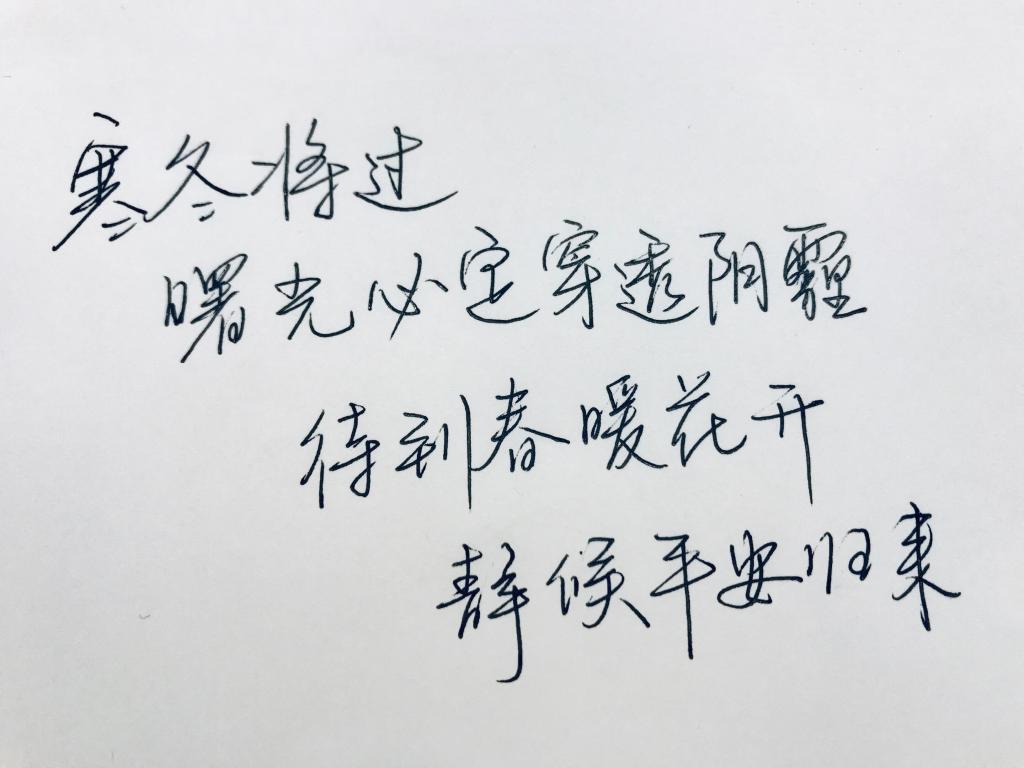 寒冬将过
曙光必定穿透阴霾
待到春暖花开
静候平安归来